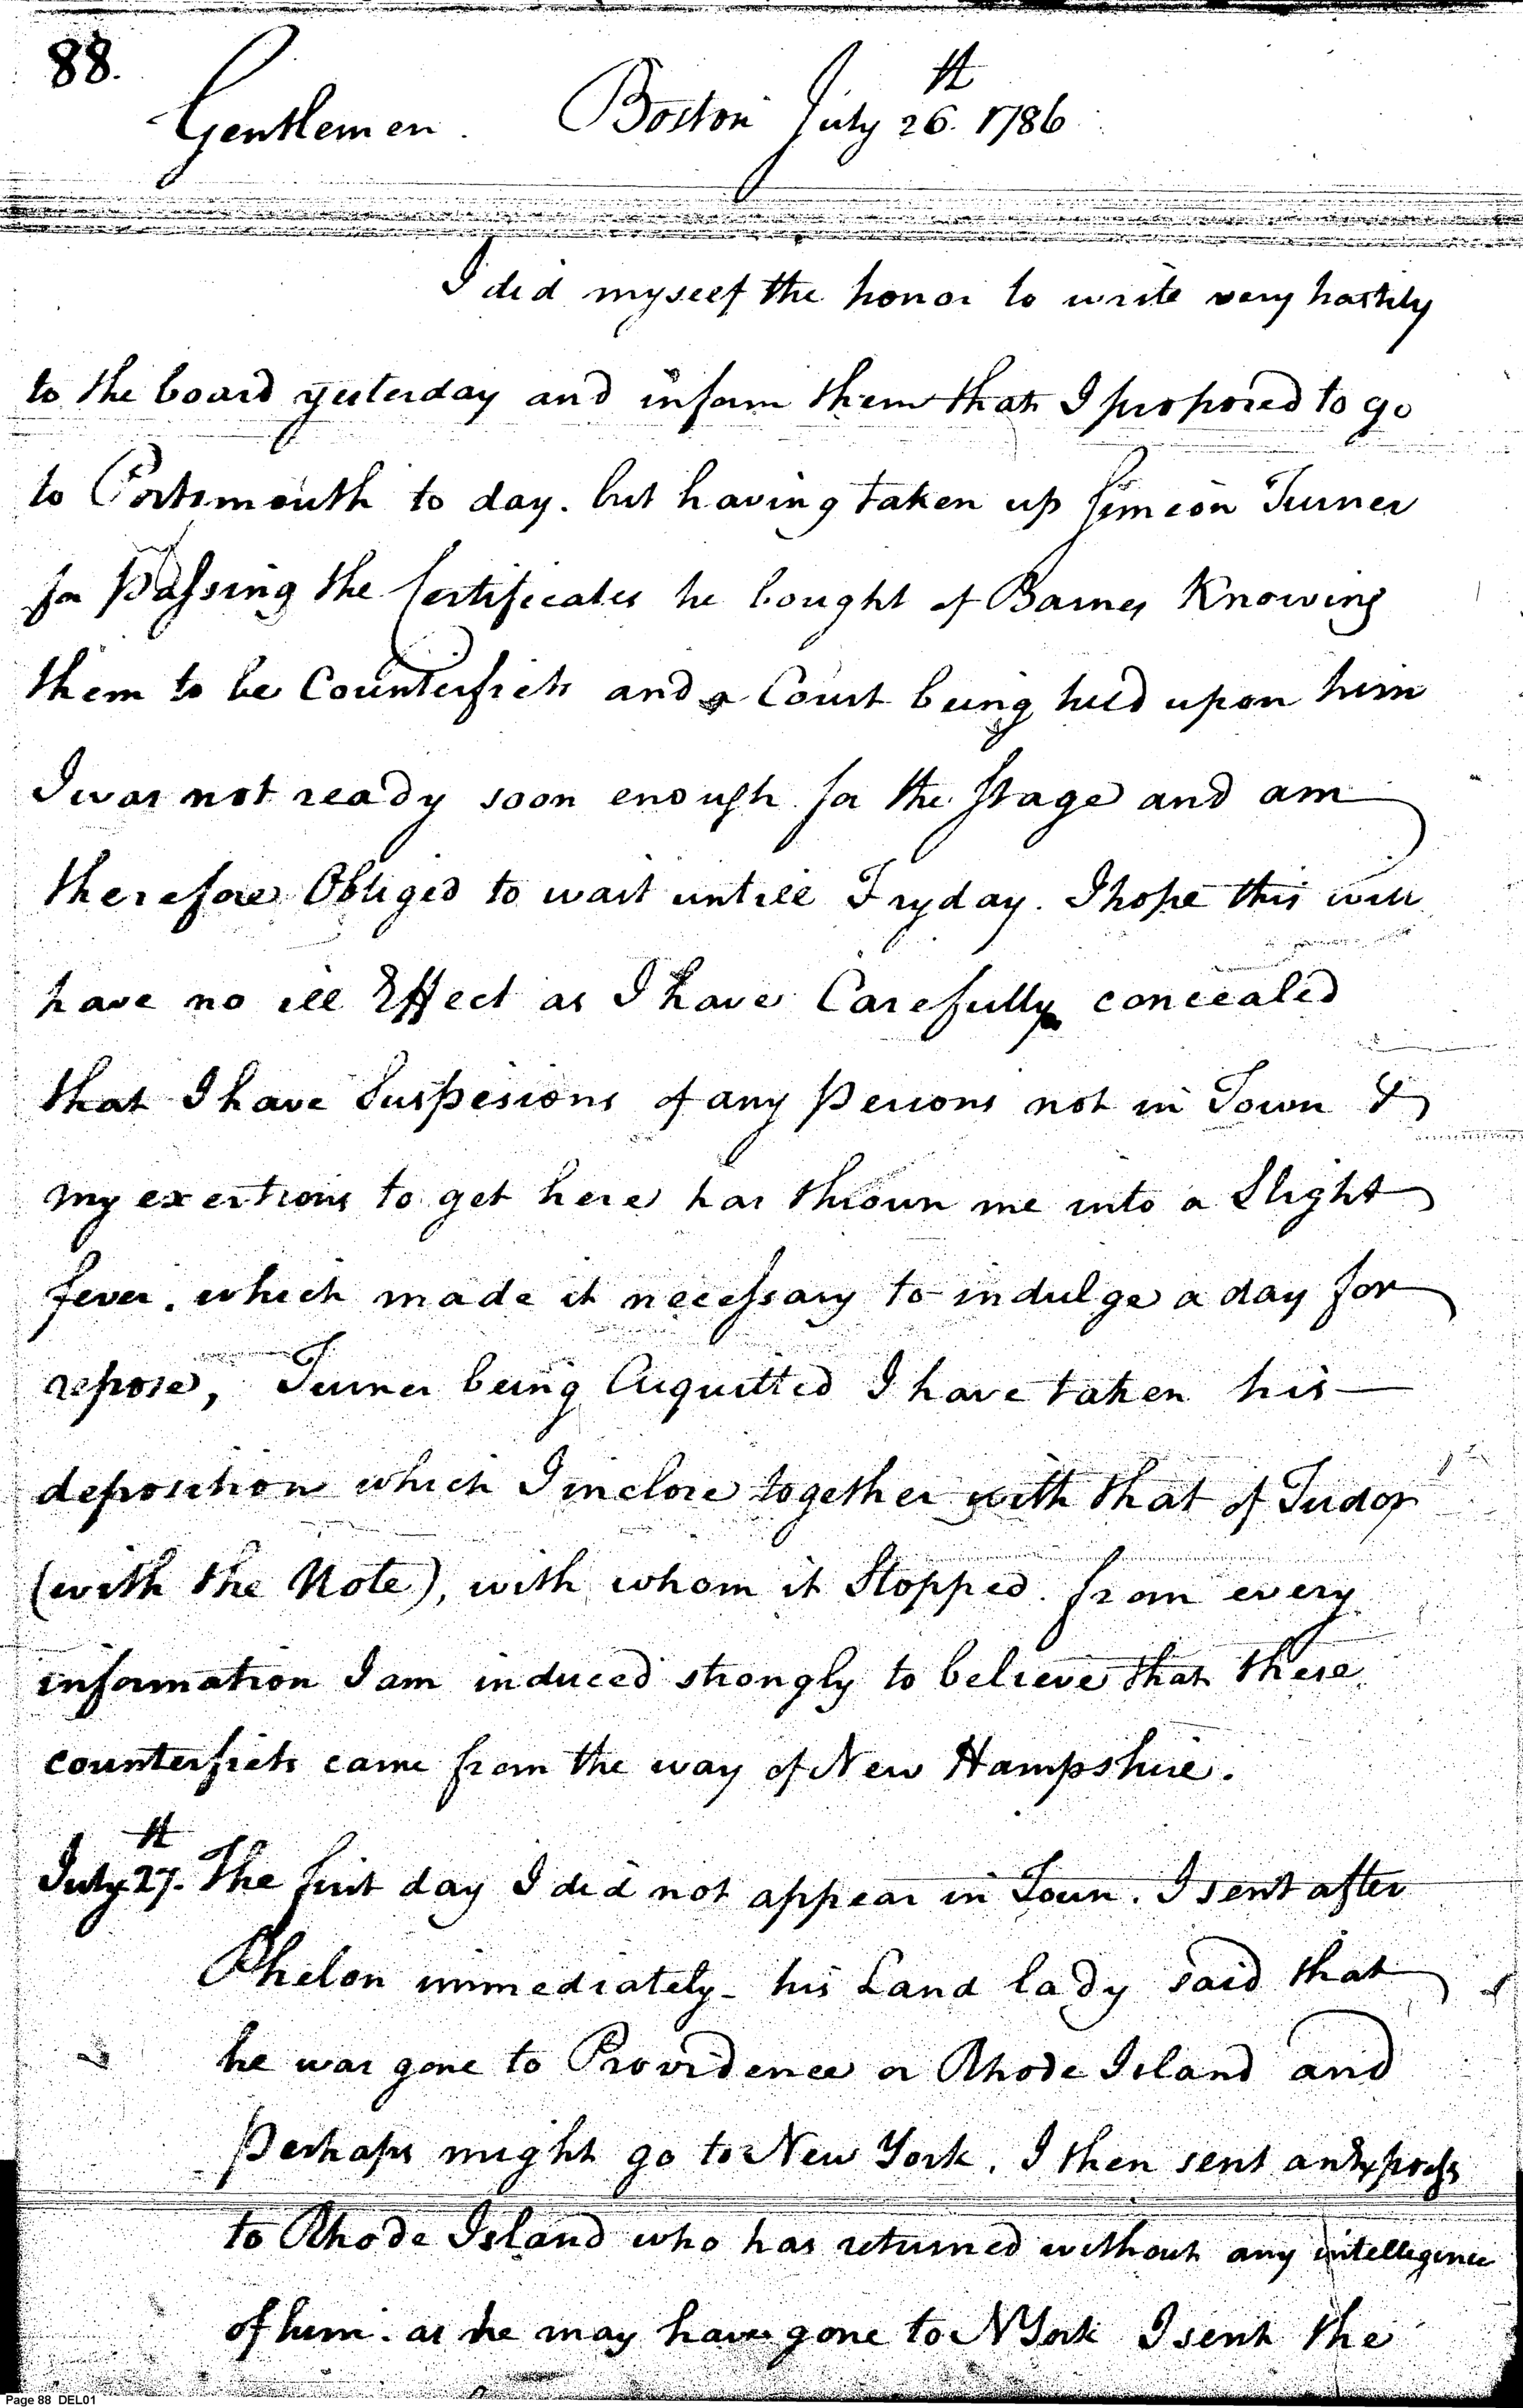 88.
Gentlemen. Boston July 26th. 1786
I did myself the honor to write very hastily
to the board yesterday and inform them that I proposed to go
to Portsmouth to day. but having taken up Simeon Turner
for Passing the Certificates he bought of Barnes Knowing
them to be Counterfiets and a Court being held upon him
I was not ready soon enough for the Stage and am
therefore Obliged to wait untill Fryday. I hope this will
have no ill Effect as I have Carefully concealed
that I have Suspesions of any Persons not in Town &
my exertions to get here has thrown me into a Slight
fever. which made it necessary to indulge a day for
repose, Turner being Acquitted I have taken his —
deposition which I inclose together with that of Tudor
(with the Note), with whom it Stopped. from every
information I am induced strongly to believe that these
counterfiets came from the way of New Hampshire.
July 27th. The first day I did not appear in Town. I sent after
Phelon immediately - his Land lady said that
he was gone to Providence or Rhode Island and
Perhaps might go to New York. I then sent an Express
to Rhode Island who has returned without any intelligence
of him. as he may have gone to N York I sent the
Page 88 DEL01